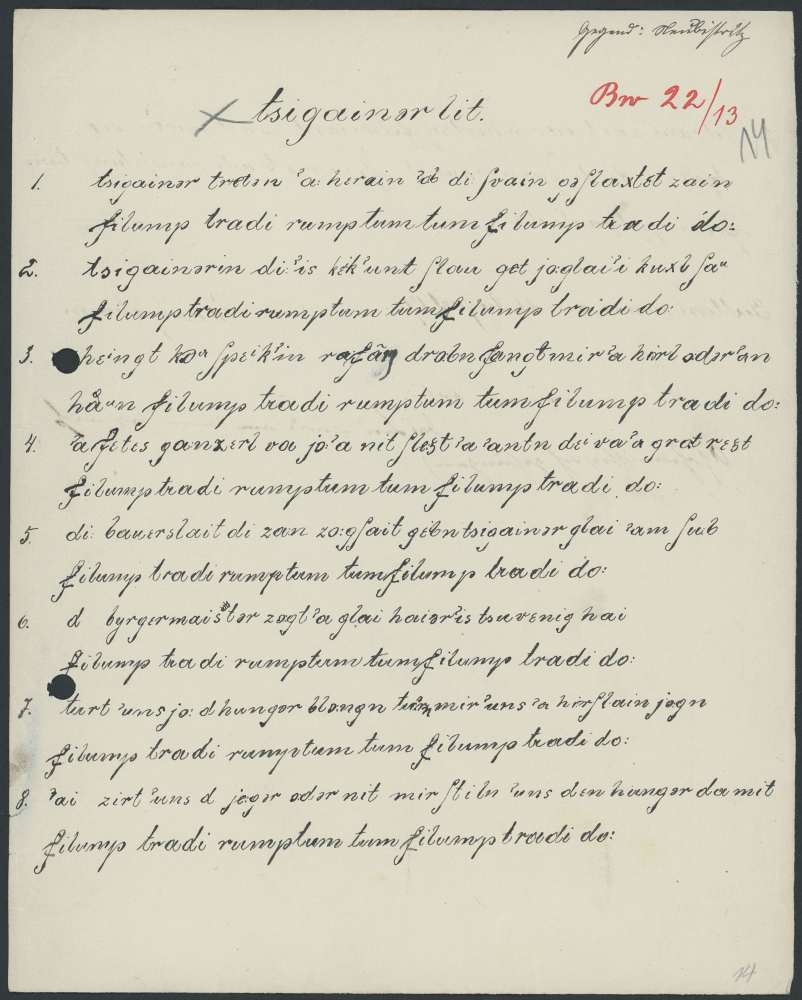 Gegend: Neubistritz
Bw 22/13
14
tsigainər lit.
1. tsigainər tretən ʾa: herain ʾob di: ʃvain gəʃlaxtət zain
filump tradi rumptum tum filump tradi do:
2. tsigainərin di: ʾis kekʾunt ʃlau get jo: glai ʾi kuxl ʃaᵘ
filump tradi rumptum tum filump tradi do:
3. heingt koᵃ ʃpekʾin drobn fangt mir ʾa hörl odər ʾan
håᵃn filump tradi rumptum tum filump tradi do:
4. ʾa fetes ganzerl va jo: ʾa nit ʃlext ʾa ʾantn de va ʾa grat rext
filump tradi rumptum tum filump tradi do:
5. di: bauerslait di zan zo: gʃait gebn tsigainər glai ʾam ʃub
filump tradi rumptum tum filump tradi do:
6. d byrgermaistər zogt ʾa glai haiər ʾis tsuvenig hai
filump tradi rumptum tum filump tradi do:
7. tuʀt ʾuns jo: d hungər blongn mir ʾuns ʾa hirʃlain jogn
filump tradi rumptum tum filump tradi do:
8. ʾai zirt ʾuns d jegər odər nit mir ʃtiln ʾuns den hungər damit
filump tradi rumptum tum filump tradi do:
14